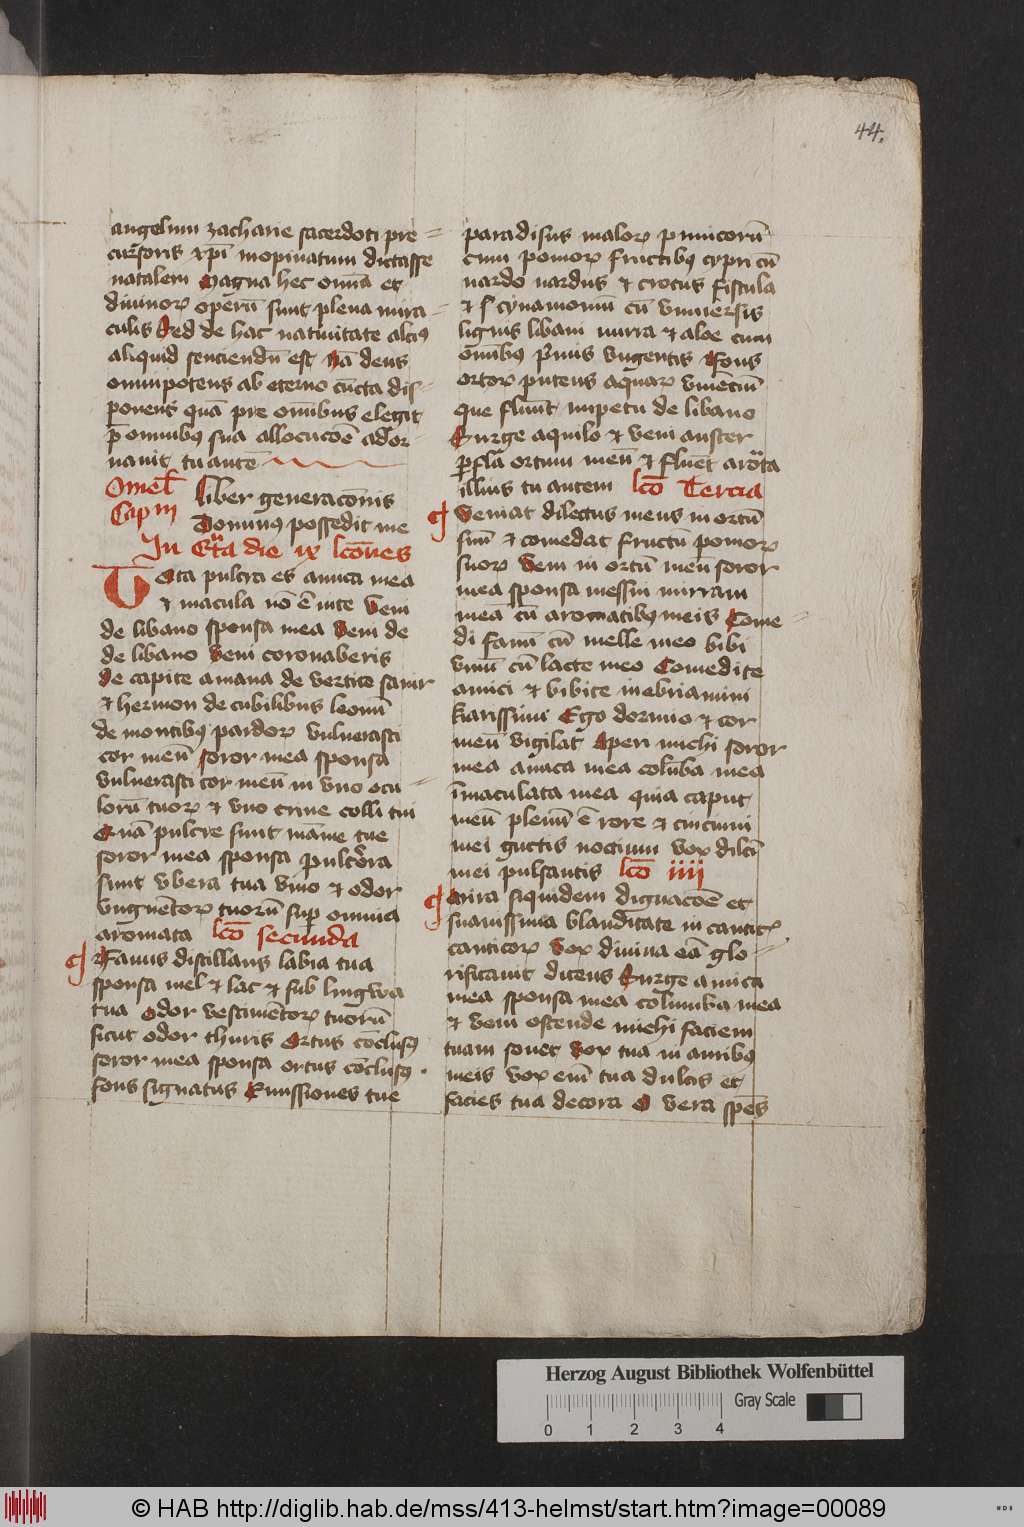 44.
angelum zacharie sacerdoti pre=
cursoris xp̄i inopinatum dictasse
natalem Magna hec om̄ia et
diuinoꝝ operū sunt plena mira=
culis Sed de hac natiuitate alciꝰ
aliquid senciendū est Nā deus
omnipotens ab eterno cūcta dis=
ponens quā pre om̄ibus elegit
p̄ omnibꝫ sua allocucōe ador=
nauit tu autē
Omel̄ Liber generacōnis
Cap̄m Dominꝰ possedit me
In Qͬta die ix lcōnes
TOta pulcra es amica mea
et macula nō ē in te Veni
de libano sponsa mea Veni de
de libano Veni coronaberis
De capite amana de vertice sanir
et hermon de cubilibus leonū
de montibꝫ pardoꝝ vulnerasti
cor meū soror mea sponsa
vulnerasti cor meū in vno ocu=
lorū tuoꝝ et vno crine colli tui
Quā pulcre sunt mām̄e tue
soror mea sponsa pulcͥora
sunt vbera tua vino et odor
vnguētoꝝ tuorū sup omnia
aromata lcō secunda
Fauus distillans labia tua
sponsa mel et lac et sub lingwa
tua odor vestimētoꝝ tuorū
sicut odor thuris Ortus cōclusꝰ
soror mea sponsa ortus cōclusꝰ
fons signatus Emissiones tue
paradisus maloꝝ punicorū
cum pomoꝝ fructibꝫ cypri cū
nardo nardus et crocus fistula
et cynamomū cū vniuersis
lignis libani mirra et aloe cum
om̄ibꝫ p̄mis vngentis Fons
ortoꝝ puteus aquaꝝ viuenciū
que fluūt impetu de libano
Surge aquilo et veni auster
ꝑfla ortum meū et fluēt aroͣta
illius tu autem lcō Tercia
Veniat dilectus meus in ortū
suū et comedat fructū pomoꝝ
suoꝝ Veni in ortū meū soror
mea sponsa messui mirram
meā cū aromatibꝫ meis Come=
di fauū cū melle meo bibi
vinū cū lacte meo Comedite
amici et bibite inebriamini
karissimi Ego dormio et cor
meū vigilat Aperi michi soror
mea amica mea colūba mea
īmaculata mea quia caput
meū plenū ē rore et cincinni
mei guttis noctium vox dilc̄i
mei pulsantis lcō iiii
Mira siquidem dignacōe et
suauissima blanditate in cantic̄
canticoꝝ Vox diuina eā glo=
rificauit dicens Surge amica
mea sponsa mea columba mea
et veni ostende michi faciem
tuam sonet Vox tua in auribꝫ
meis vox em̄ tua dulcis et
facies tua decora O vera spēs
Herzog August Bibliothek Wolfenbüttel
Gray Scale
0 1 2 3 4
© HAB http://diglib.hab.de/mss/413-helmst/start.htm?image=00089
WDB